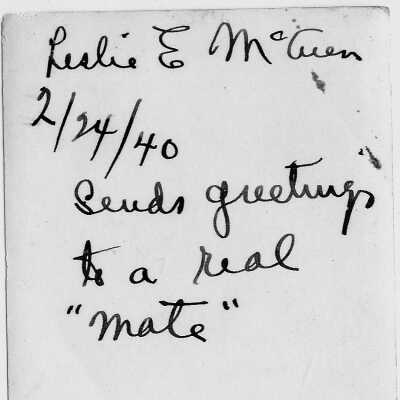 Leslie E McTuen
2/24/40
Sends greetings
to a real
"Mate"